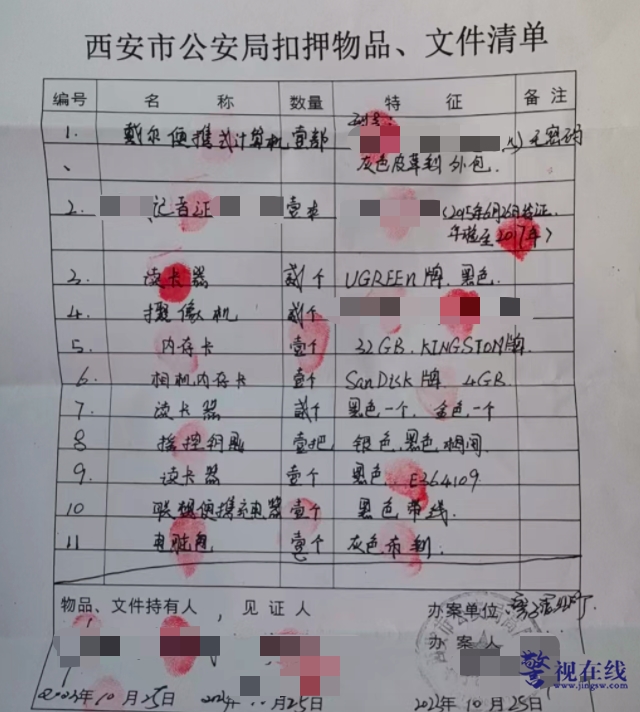 西安市公安局扣押物品、文件清单
编号 名 称 数量 特 征 备 注
1. 戴尔便携式计算机 壹部 型号: 无密码
、 灰色皮革制外包
2. 记者证 壹本 (2015年6月26日发证,
年检至2017年)
3. 读卡器 贰个 UGREEN牌.黑色.
4. 摄像机 贰个
5. 内存卡 壹个 32GB.KINGSTON牌.
6. 相机内存卡 壹个 SanDisk牌.4GB.
7. 读卡器 贰个 黑色一个,金色一个
8 钥匙 壹把 银色.黑色相间
9. 读卡器 壹个 黑色. E364109
10 联想便携充电器 壹个 黑色带线.
11 电脑包 壹个 灰色布制.
物品、文件持有人 , 见 证 人 办案单位
办 案 人
2023年10月25日 10月25日 2023年10月25日
警视在线
www.jingsw.com